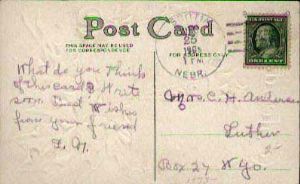 Post Card
THIS SPACE MAY BE USED
FOR CORRESPONDENCE
FOR ADDRESS ONLY
25
1 PM
NEBR.
ONE CENT
What do you think
of this card? Write
soon. Good Wishes
from your friend
Mrs. C. H. Anderson
Luther
Box 27 Wyo.